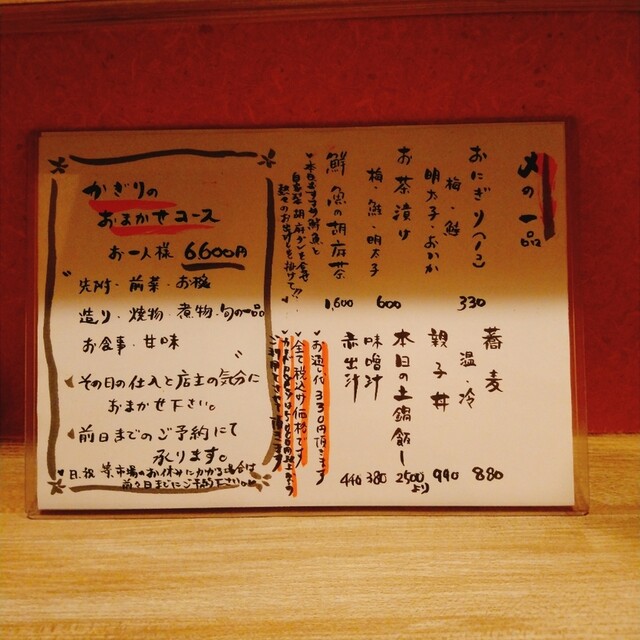 〆の一品
おにぎり(1コ)
梅・鮭
明太子・おかか
330
お茶漬け
梅・鮭・明太子
600
鮮魚の胡麻茶
・本日おすすめ鮮魚と
自家製胡麻ダレを合せ
熱々のお出汁を掛けて!!
1,600
蕎麦
温・冷
880
親子丼
990
本日の土鍋飯
2500より
味噌汁
380
赤出汁
440
・お通し代330円頂きます
・全て税込み価格です
かぎりの
おまかせコース
お一人様 6,600円
先附・前菜・お椀
造り・焼物・煮物・旬の一品
お食事・甘味
・その日の仕入と店主の気分に
おまかせ下さい。
・前日までのご予約にて
承ります。
・日、祝 業市場のお休みにかかる場合は
前々日までにご予約下さい。